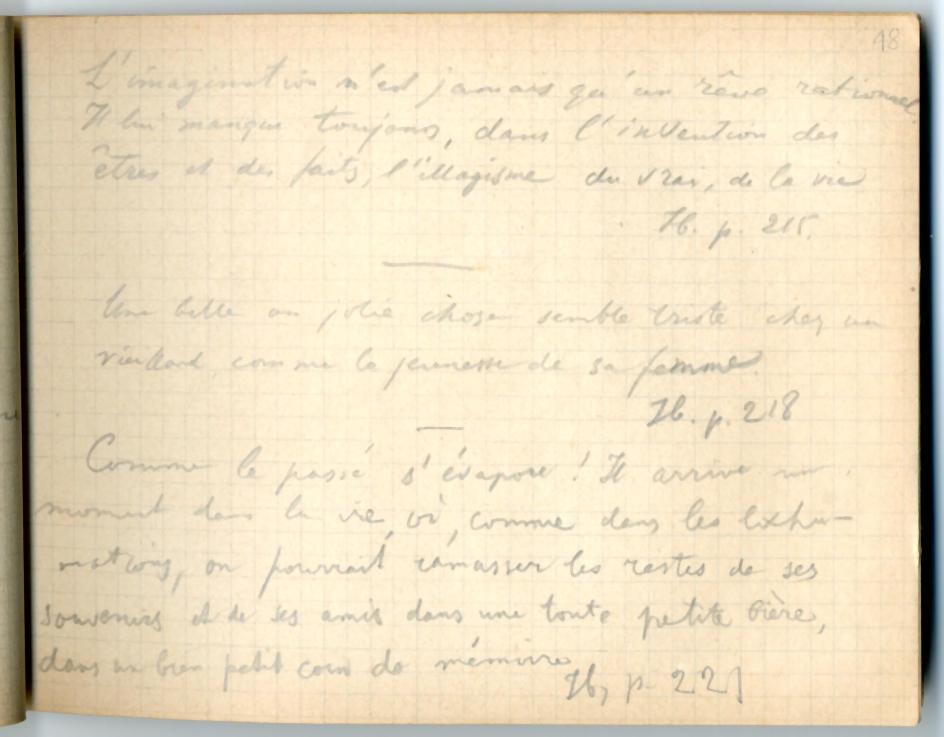 48
L'imagination n'est jamais qu'un rêve rationnel.
Il lui manque toujours, dans l'invention des
êtres et des faits, l'illogisme du vrai, de la vie
Ib. p. 215.
Une belle ou jolie chose semble triste chez un
vieillard, comme la jeunesse de sa femme.
Ib. p. 218
Comme le passé s'évapore ! Il arrive un
moment dans la vie, où, comme dans les
mations, on pourrait ramasser les restes de ses
souvenirs et de ses amis dans une toute petite bière,
dans un bien petit coin de mémoire
Ib, p. 221